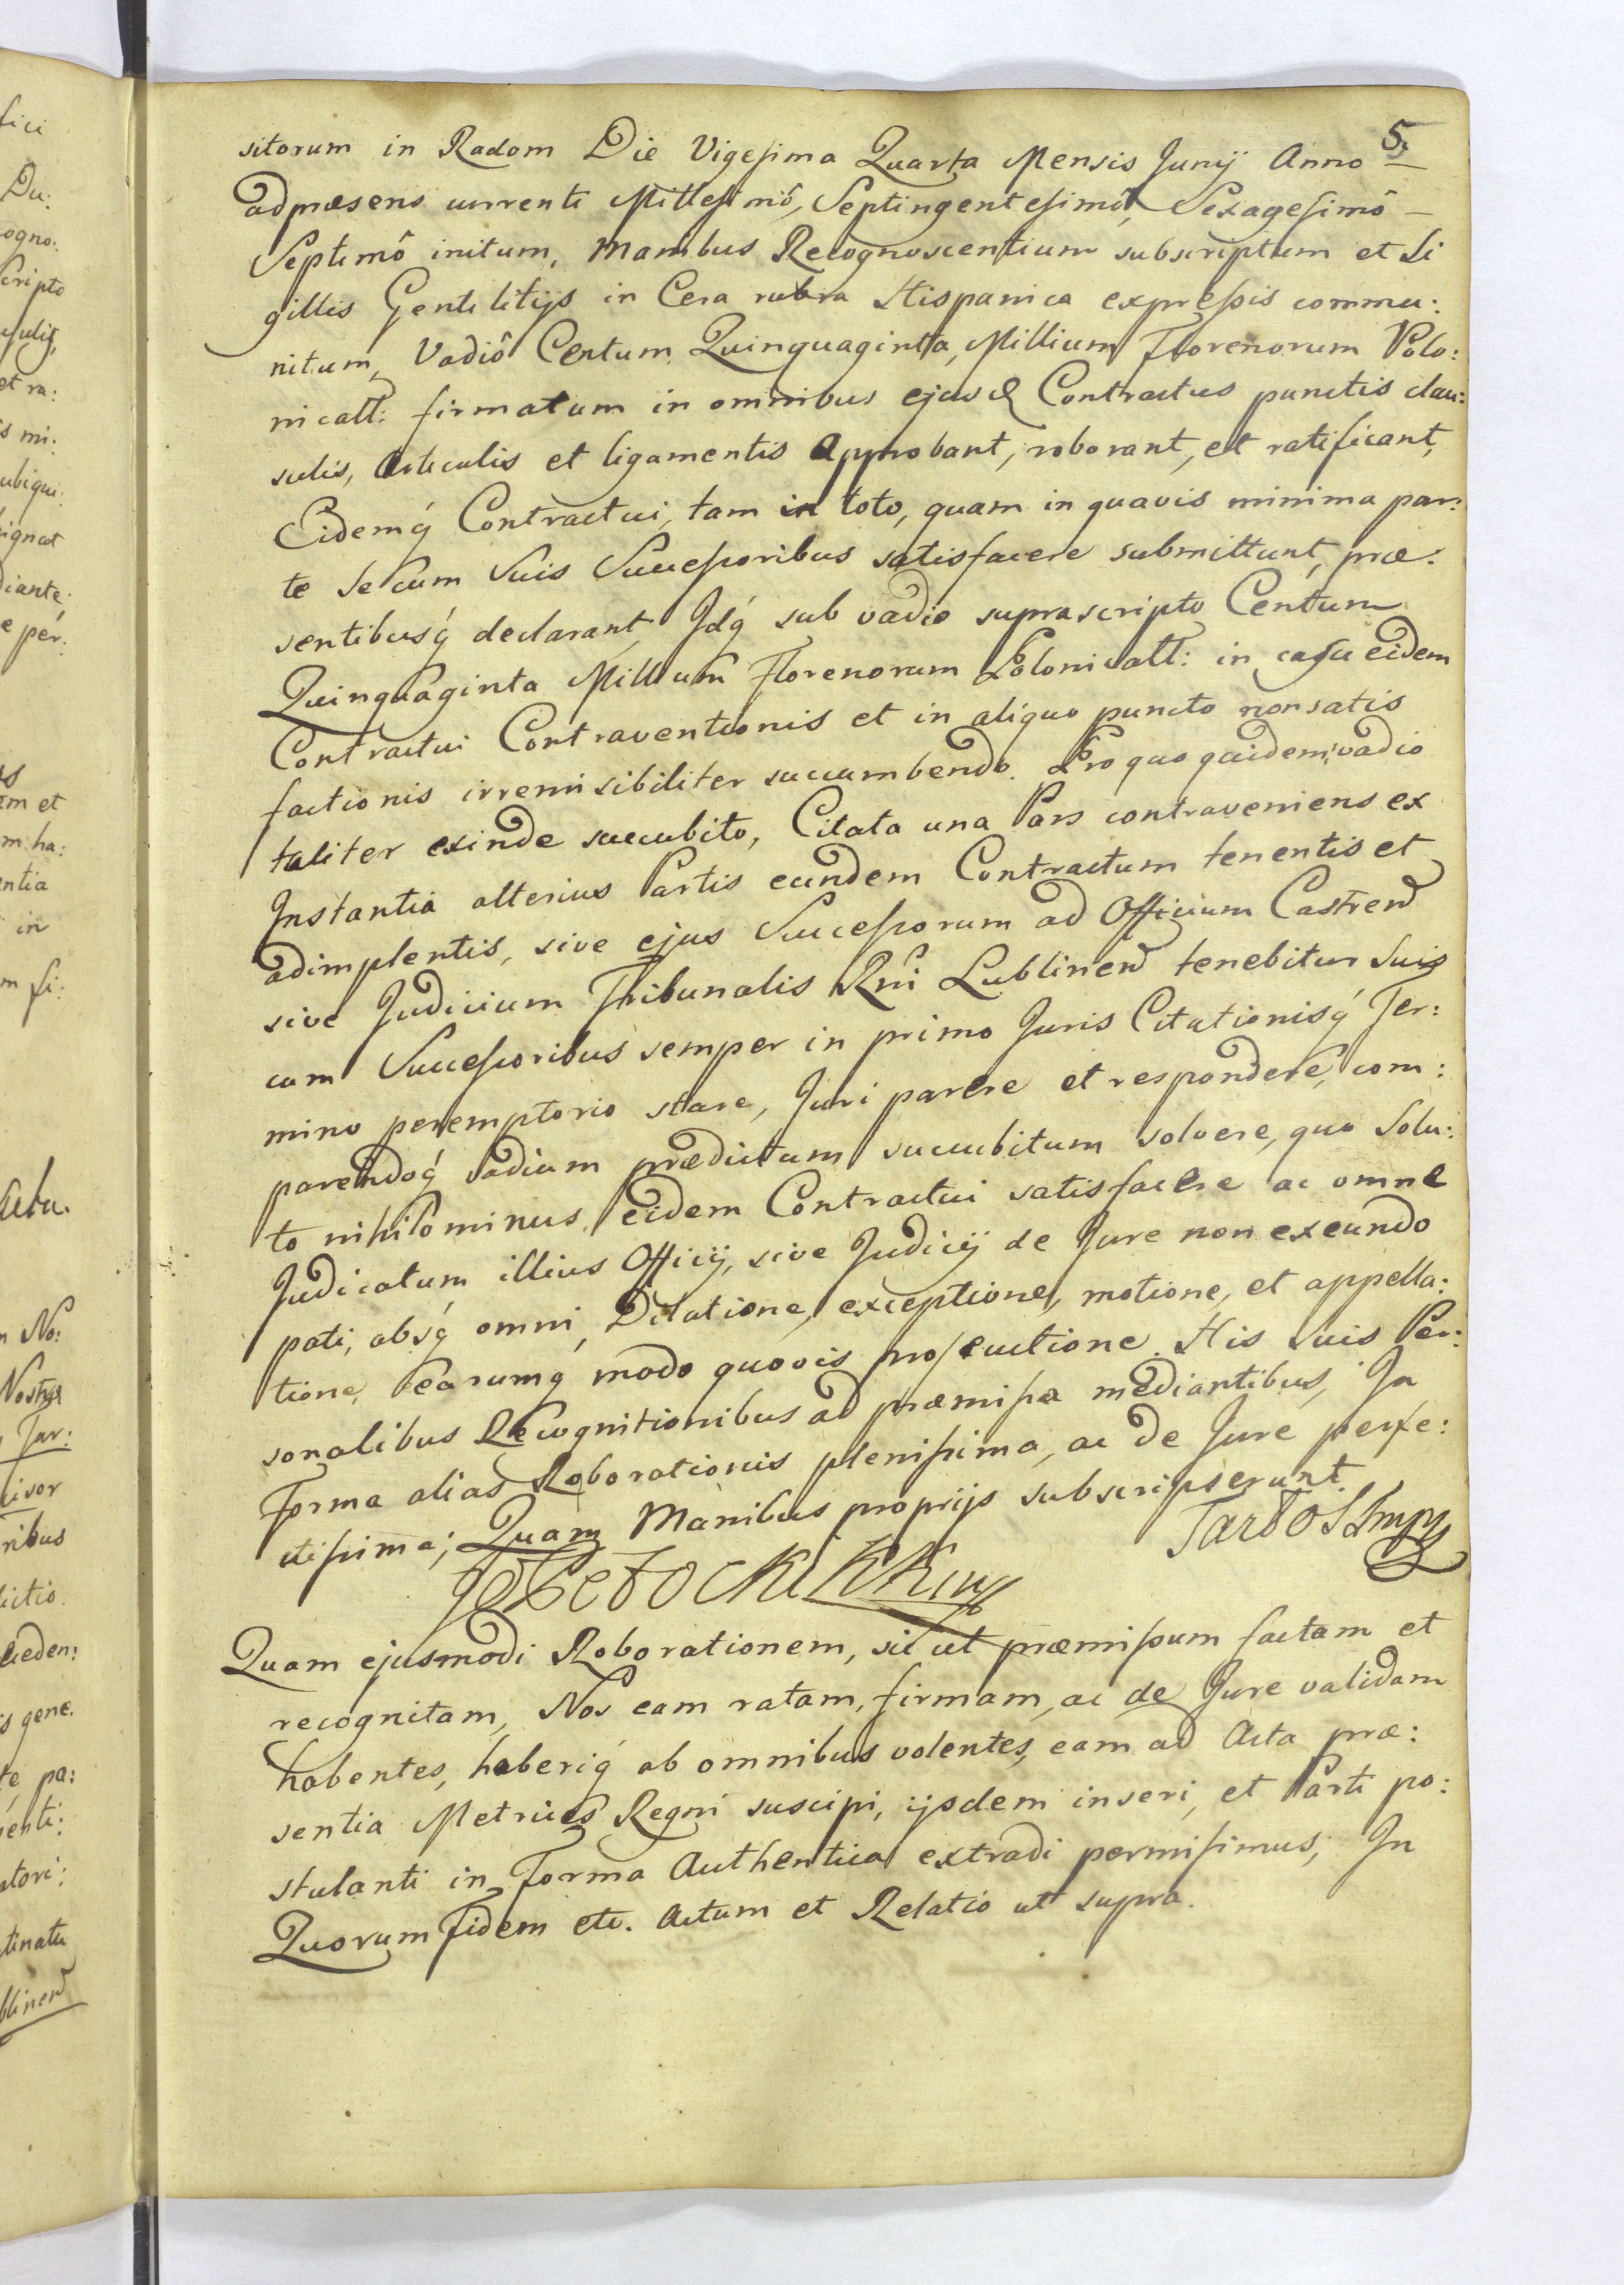 5
sitorum in Radom Die Vigesima Quarta Mensis Junij Anno
adpræsens currenti Millesimô, Septingentesimô, Sexagesimô —
Septimô initum, Manibus Recognoscentium subscriptum et Si
gillis Gentilitijs in Cera rubra Hispanica expressis commu:
nitum, Vadiô Centum Quinquaginta, Millium Florenorum Polo:
nicall: firmatum in omnibus ejusd Contractus punctis clau:
sulis, Articulis et ligamentis Approbant, roborant, et ratificant,
Eidemq́ Contractui, tam in toto, quam in quavis minima par:
te se cum Suis Successoribus satisfacere submittunt, præ:
sentibusq́ declarant, Jdq́ sub vadio suprascripto Centum
Quinquaginta Millium Florenorum Polonicall: in casu eidem
Contractui Contraventionis et in aliquo puncto nonsatis
factionis irremisibiliter succumbendo. Pro quo quidem vadio
taliter exinde succubito, Citata una Pars contraveniens ex
Instantia alterius Partis eundem Contractum tenentis et
adimplentis, sive ejus Successorum ad Officium Castren
sive Judicium Tribunalis Rni Lublinen tenebitur Suis
cum Successoribus semper in primo Juris Citationisq́ Ter:
mino peremptorio stare, Juri parere et respondere, com:
parendoq́ vadium prædictum succubitum solvere, quo Solu:
to nihilominus eidem Contractui satisfacere ac omne
Judicatum illius Officij, sive Judicij de Jure non exeundo
pati, absq́ omni Dilatione, exceptione, motione, et appella:
tione, earumq́ modo quovis prosecutione. His Suis Per:
sonalibus Recognitionibus ad præmissa mediantibus, In
Forma alias Roborationis plenissima, ac de Jure perfe:
ctissima; Quam Manibus proprijs subscripserunt.
Quam ejusmodi Roborationem, sic ut præmissum factam et
recognitam, Nos eam ratam, firmam, ac de Jure validam
habentes, haberiq́ ab omnibus volentes, eam ad Acta præ:
sentia Metrices Regni suscipi, ijsdem inseri, et Parti po:
stulanti in Forma Authentica extradi permisimus; In
Quorum Fidem etc. Actum et Relatio ut supra.